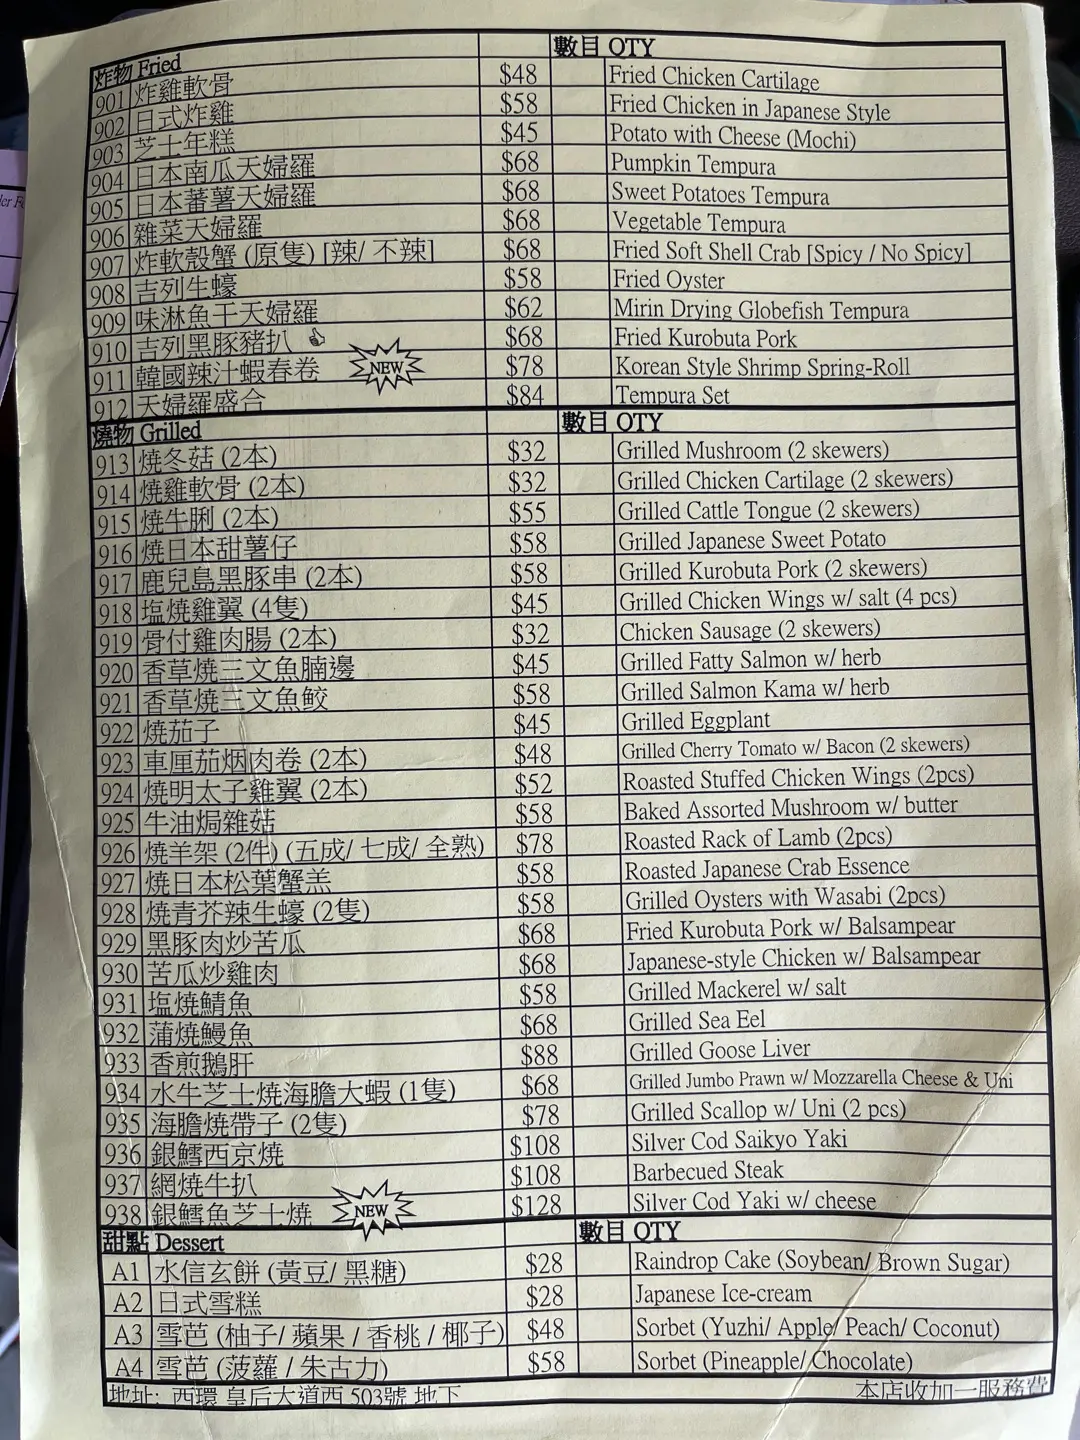 炸物 Fried 數目 QTY
901 炸雞軟骨 $48 Fried Chicken Cartilage
902 日式炸雞 $58 Fried Chicken in Japanese Style
903 芝士年糕 $45 Potato with Cheese (Mochi)
904 日本南瓜天婦羅 $68 Pumpkin Tempura
905 日本蕃薯天婦羅 $68 Sweet Potatoes Tempura
906 雜菜天婦羅 $68 Vegetable Tempura
907 炸軟殼蟹 (原隻) [辣/ 不辣] $68 Fried Soft Shell Crab [Spicy / No Spicy]
908 吉列生蠔 $58 Fried Oyster
909 味淋魚干天婦羅 $62 Mirin Drying Globefish Tempura
910 吉列黑豚豬扒 $68 Fried Kurobuta Pork
911 韓國辣汁蝦春卷 NEW $78 Korean Style Shrimp Spring-Roll
912 天婦羅盛合 $84 Tempura Set
燒物 Grilled 數目 QTY
913 燒冬菇 (2本) $32 Grilled Mushroom (2 skewers)
914 燒雞軟骨 (2本) $32 Grilled Chicken Cartilage (2 skewers)
915 燒牛脷 (2本) $55 Grilled Cattle Tongue (2 skewers)
916 燒日本甜薯仔 $58 Grilled Japanese Sweet Potato
917 鹿兒島黑豚串 (2本) $58 Grilled Kurobuta Pork (2 skewers)
918 塩燒雞翼 (4隻) $45 Grilled Chicken Wings w/ salt (4 pcs)
919 骨付雞肉腸 (2本) $32 Chicken Sausage (2 skewers)
920 香草燒三文魚腩邊 $45 Grilled Fatty Salmon w/ herb
921 香草燒三文魚鮫 $58 Grilled Salmon Kama w/ herb
922 燒茄子 $45 Grilled Eggplant
923 車厘茄烟肉卷 (2本) $48 Grilled Cherry Tomato w/ Bacon (2 skewers)
924 燒明太子雞翼 (2本) $52 Roasted Stuffed Chicken Wings (2pcs)
925 牛油焗雜菇 $58 Baked Assorted Mushroom w/ butter
926 燒羊架 (2件) (五成/ 七成/ 全熟) $78 Roasted Rack of Lamb (2pcs)
927 燒日本松葉蟹羔 $58 Roasted Japanese Crab Essence
928 燒青芥辣生蠔 (2隻) $58 Grilled Oysters with Wasabi (2pcs)
929 黑豚肉炒苦瓜 $68 Fried Kurobuta Pork w/ Balsampear
930 苦瓜炒雞肉 $68 Japanese-style Chicken w/ Balsampear
931 塩燒鯖魚 $58 Grilled Mackerel w/ salt
932 蒲燒鰻魚 $68 Grilled Sea Eel
933 香煎鵝肝 $88 Grilled Goose Liver
934 水牛芝士燒海膽大蝦 (1隻) $68 Grilled Jumbo Prawn w/ Mozzarella Cheese & Uni
935 海膽燒帶子 (2隻) $78 Grilled Scallop w/ Uni (2 pcs)
936 銀鱈西京燒 $108 Silver Cod Saikyo Yaki
937 網燒牛扒 $108 Barbecued Steak
938 銀鱈魚芝士燒 NEW $128 Silver Cod Yaki w/ cheese
甜點 Dessert 數目 QTY
A1 水信玄餅 (黃豆/ 黑糖) $28 Raindrop Cake (Soybean/ Brown Sugar)
A2 日式雪糕 $28 Japanese Ice-cream
A3 雪芭 (柚子/ 蘋果 / 香桃 / 椰子) $48 Sorbet (Yuzhi/ Apple/ Peach/ Coconut)
A4 雪芭 (菠蘿 / 朱古力) $58 Sorbet (Pineapple/ Chocolate)
地址: 西環 皇后大道西 503號 地下 本店收加一服務費